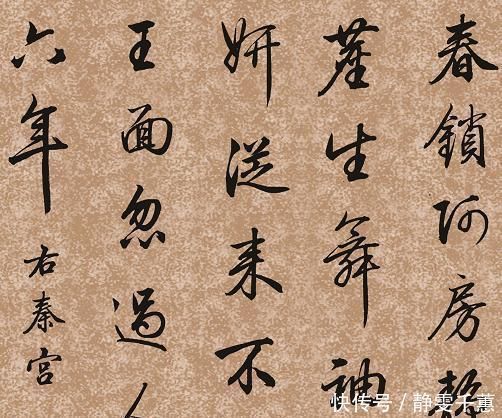 春鎖阿房
塵生舞袖
妍從来不
王面忽過
六年
右秦宮
快传号／静雯千蕙